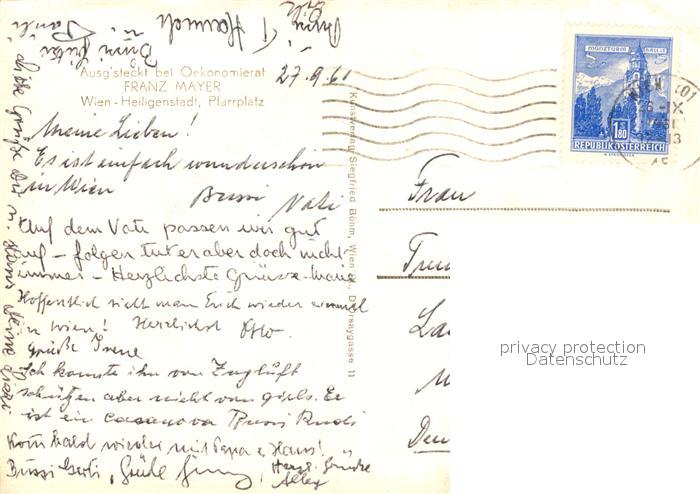 27.9.61
Ausg'steckt bei Oekonomierat
FRANZ MAYER
Wien - Heiligenstadt, Pfarrplatz
Meine Lieben!
Es ist einfach wunderschön
in Wien
Bussi Vati
Auf dem Vati passen wir gut
auf - folgen tut er aber doch nicht
immer - Herzlichste Grüsse
Hoffentlich sieht man Euch wieder einmal
in Wien! Herzlichst Otto.
Grüße Irene
Ich konnte ihn vor Zugluft
schützen aber nicht vor girls. Er
ist ein Casanova Bussi Rudi
Komm bald wieder mit Papa u. Hans!
Bussi Gerti, Grüße
Herzl. Grüße
Kunstverlag Siegfried Böhm, Wien
MÜNZTURM HALL I. T.
1.80
REPUBLIK ÖSTERREICH
WIEN 101
Frau
Den
privacy protection
Datenschutz